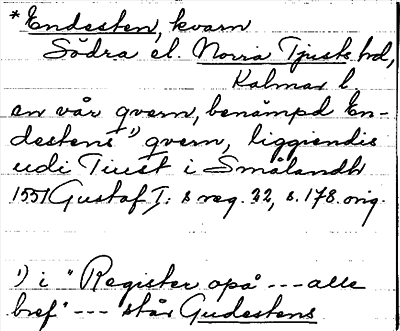 *Endesten, kvarn
Södra el. Norra Tjusts hd,
Kalmar l
en vår qvern, benämpd En-
destens ¹) qvern, liggiendis
udi Tiust i Smålandh
1551 Gustaf I:s reg. 22, s. 178. orig.
¹) i "Register opå --- alle
bref" --- står Gudestens